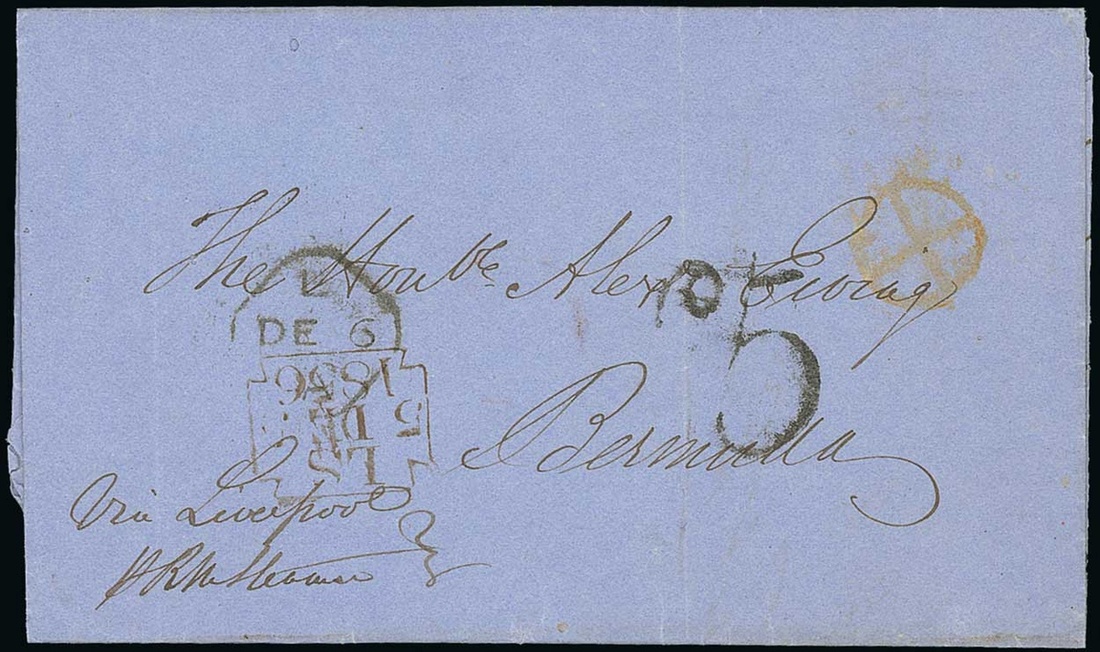 The Honble Alexr Ewing
Bermuda
Via Liverpool
p R M Steamer
DE 6
1856
5 DE
5